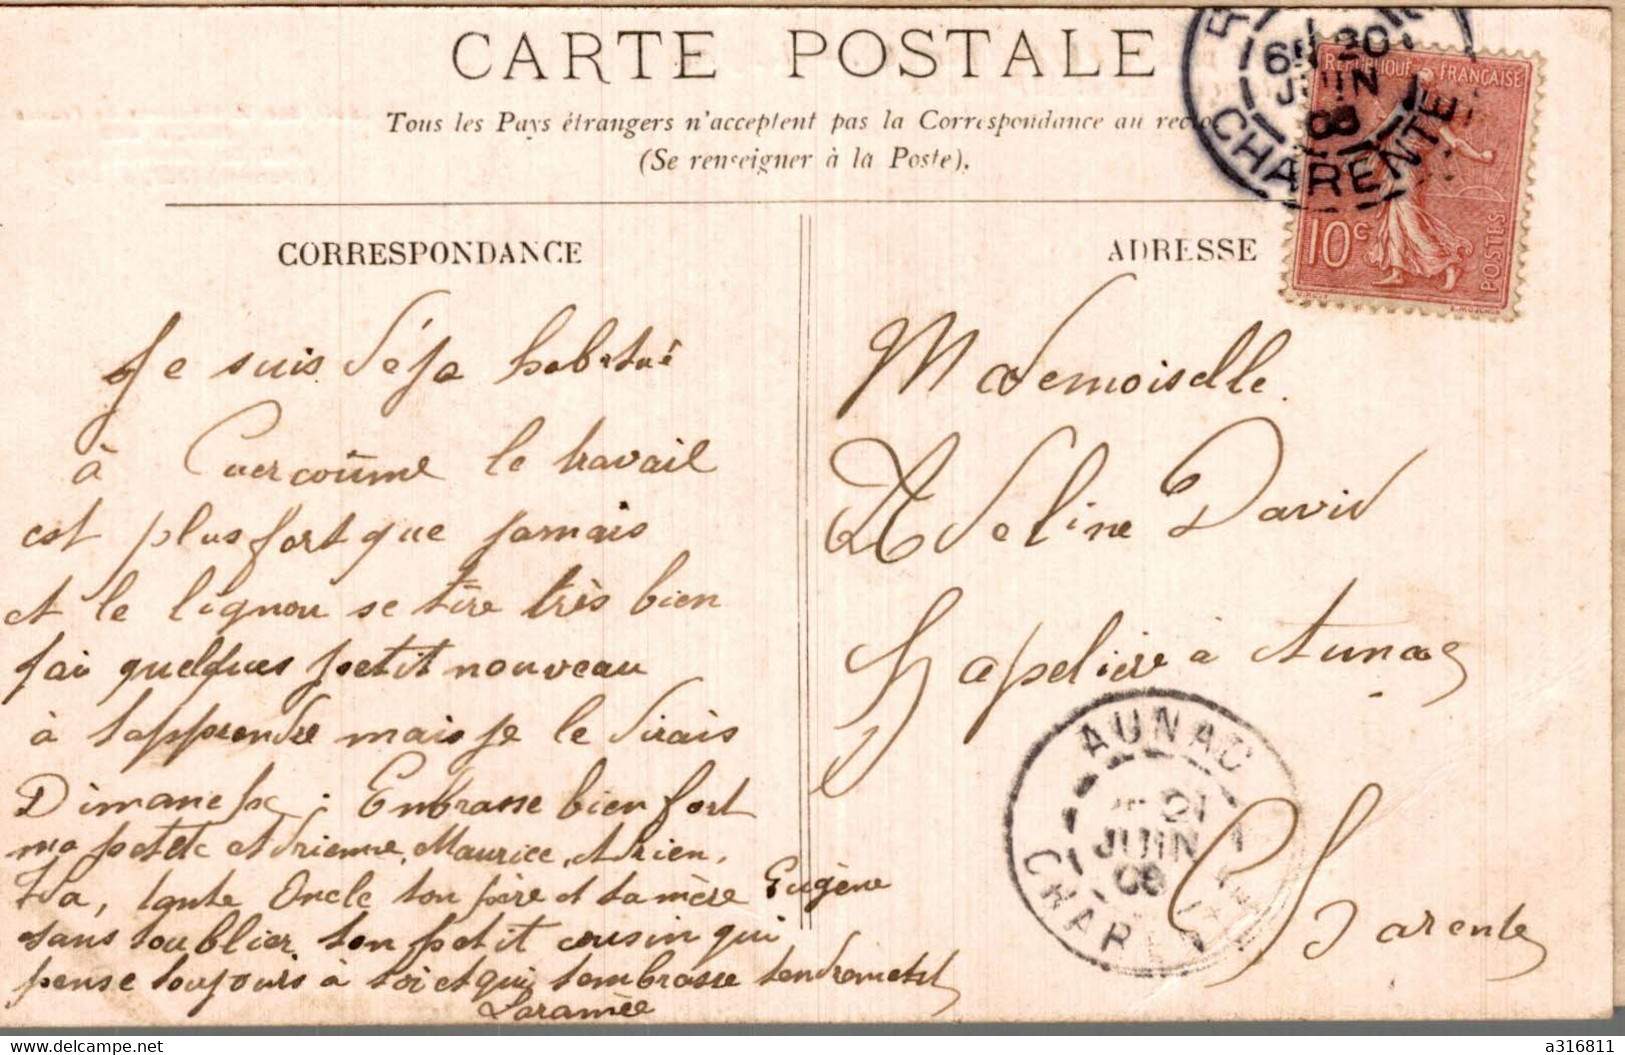 CARTE POSTALE
Tous les Pays étrangers n'acceptent pas la Correspondance au recto
(Se renseigner à la Poste).
CORRESPONDANCE
ADRESSE
6H 20
JUIN
CHARENTE
REPUBLIQUE FRANÇAISE
10c
POSTES
Je suis déja habitué
à Cuercoûme le travail
est plus fort que jamais
et le lignou se tire très bien
j'ai quelques petit nouveau
à t'apprendre mais je le dirais
Dimanche. Embrasse bien fort
ma petite Adrienne, Maurice, Adrien,
ta tante Oncle ton père et ta mère Eugène
sans t'oublier ton petit cousin qui
pense toujours à toi et qui t'embrasse tendrement
Laramée
Mademoiselle
Adeline David
Chapelière à Aunac
Charente
AUNAC
21
JUIN
CHARENTE
a316811